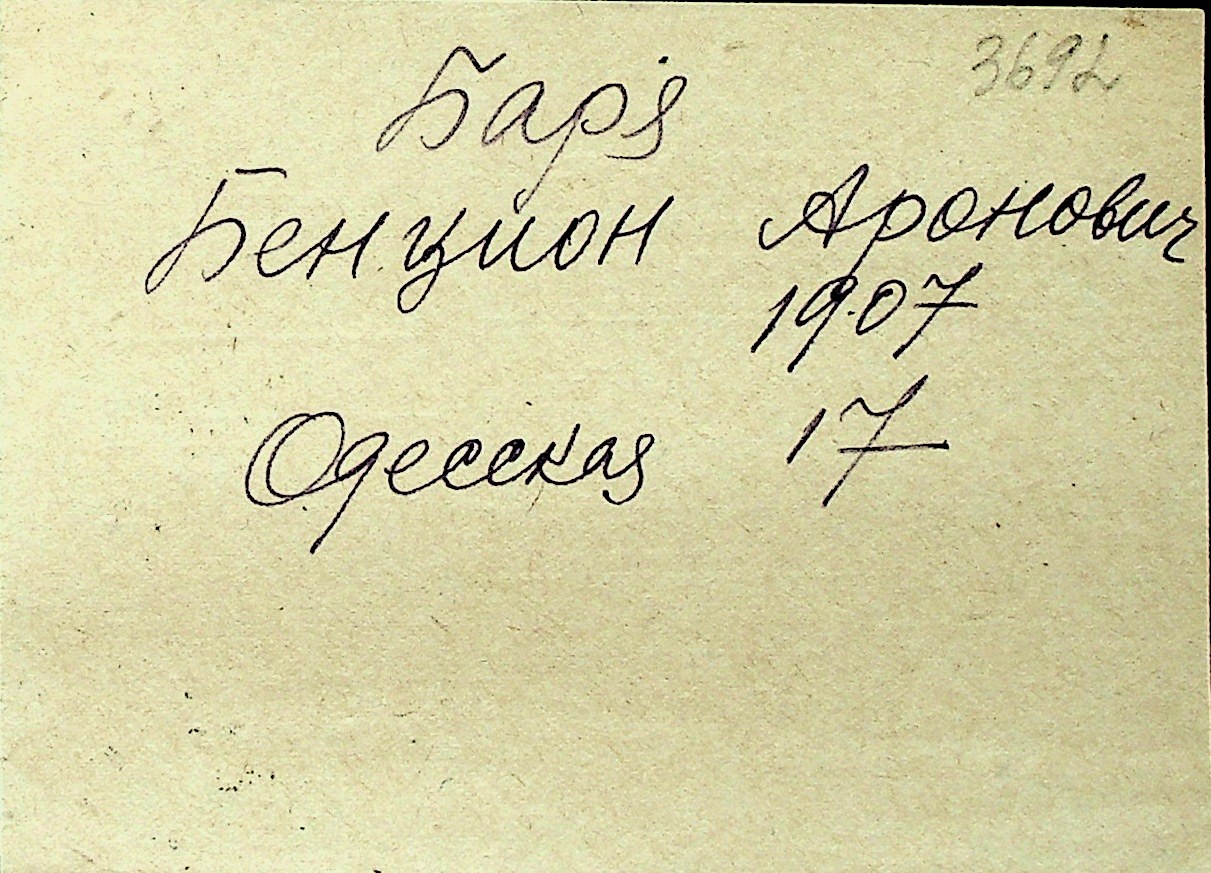 3692
Баря
Бенцион Аронович
1907
Одесская 17